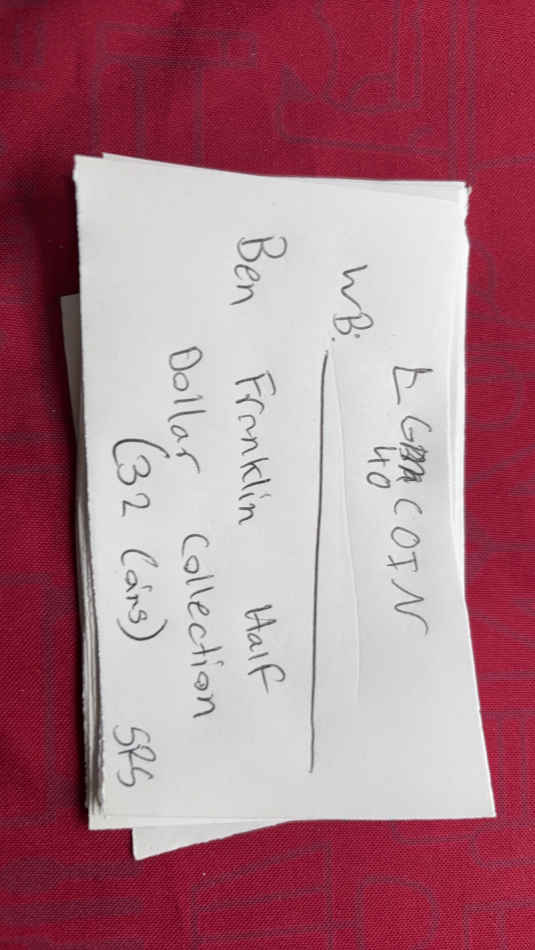 COIN
40
WB:
Ben Franklin Half
Dollar Collection
(32 Coins)
SRS